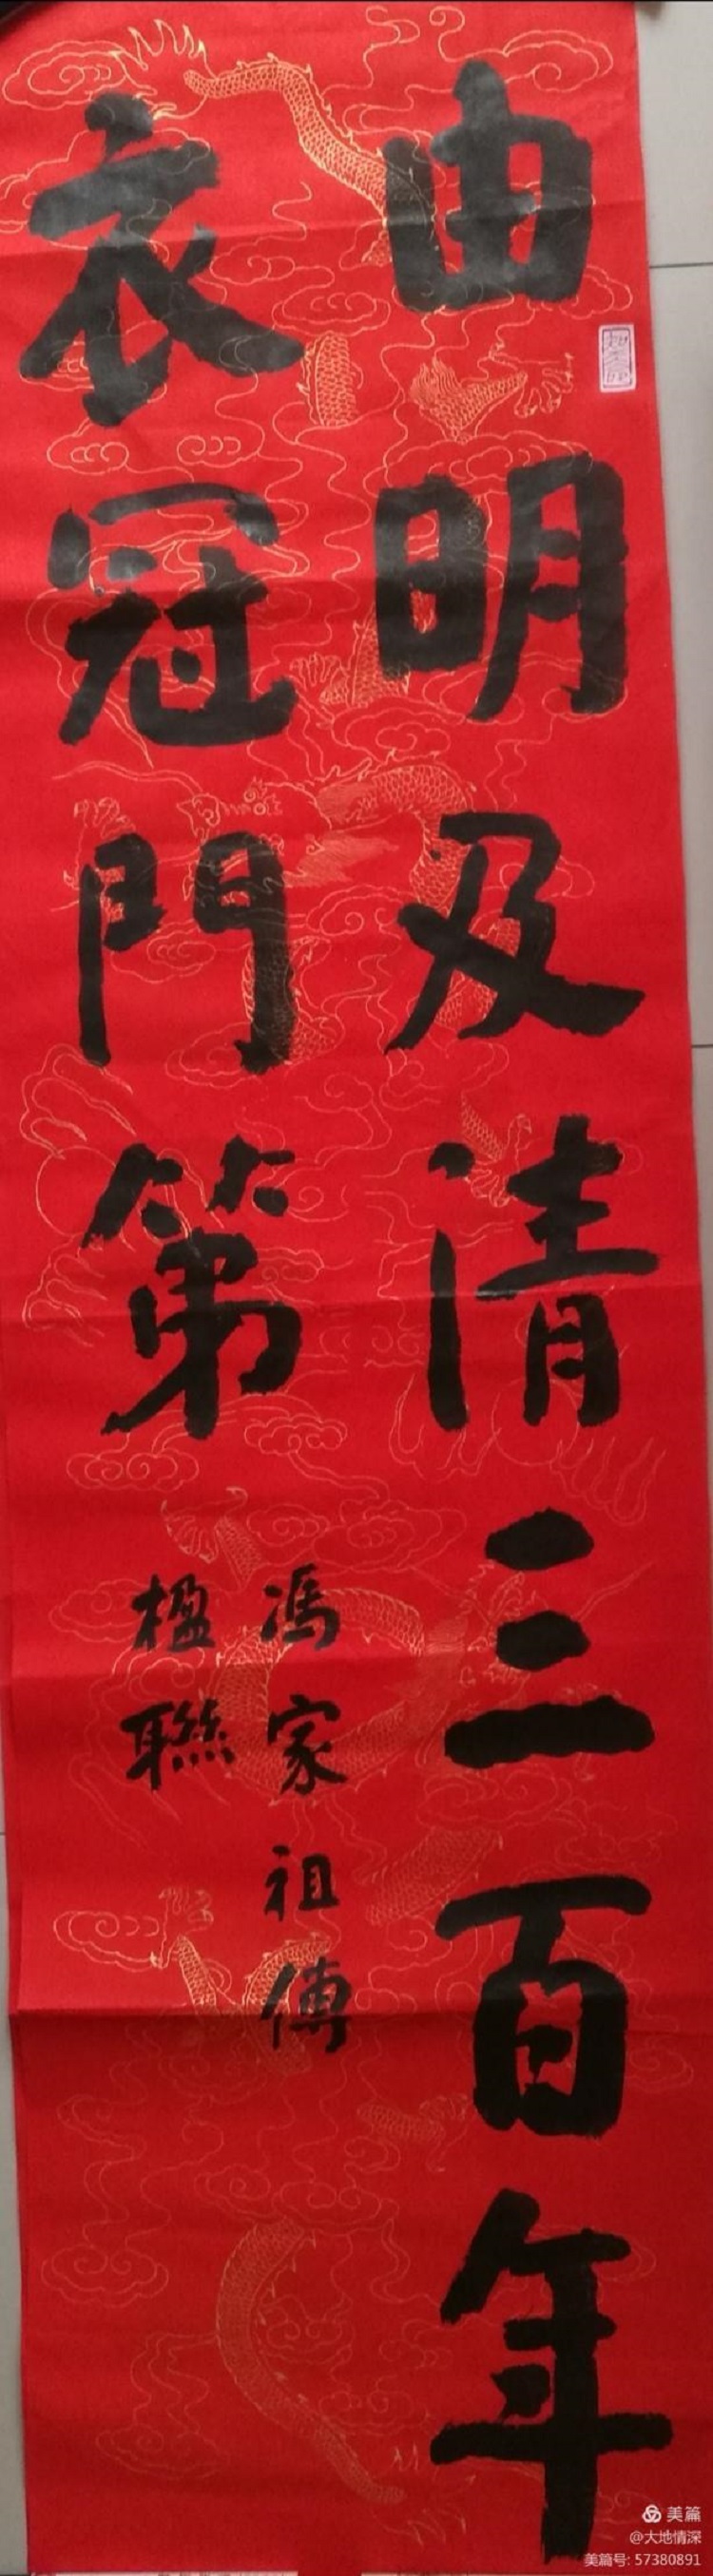 由明及清三百年
衣冠門第
馮家祖傳
楹聯
美篇
@大地情深
美篇号: 57380891